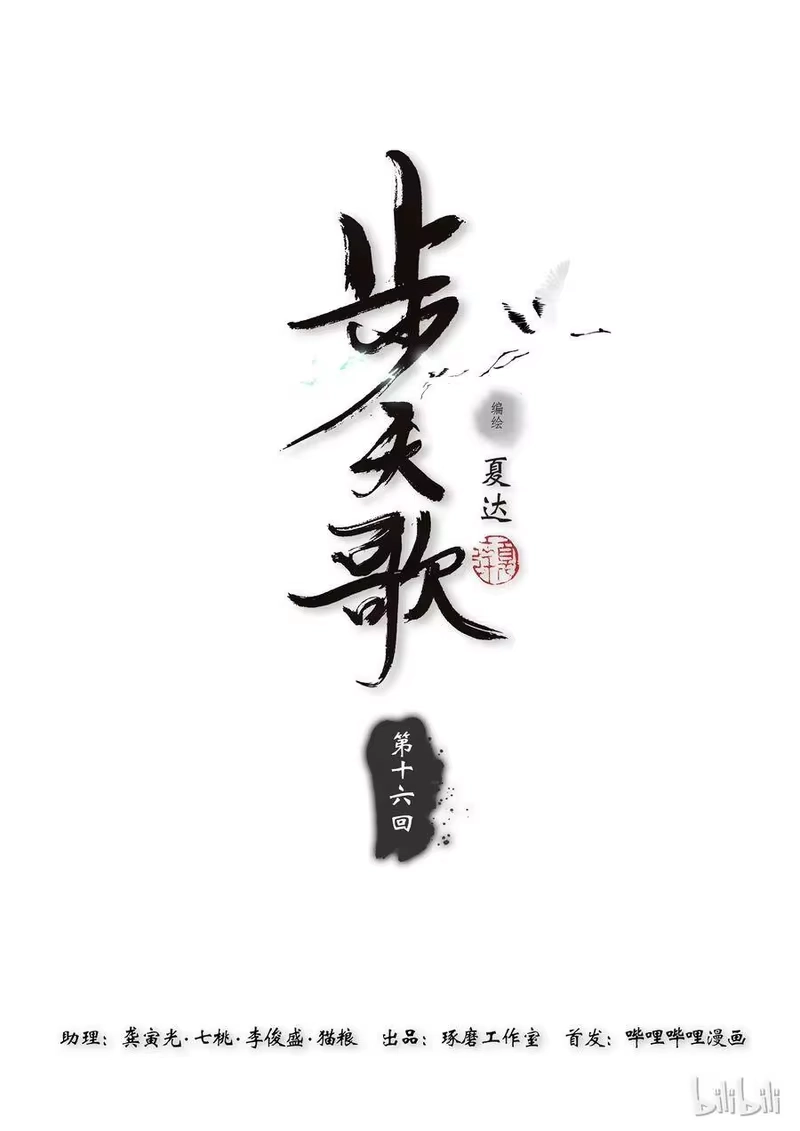 步天歌
编绘
夏达
第十六回
助理：龚寅光·七桃·李俊盛·猫粮 出品：琢磨工作室 首发：哔哩哔哩漫画
bilibili